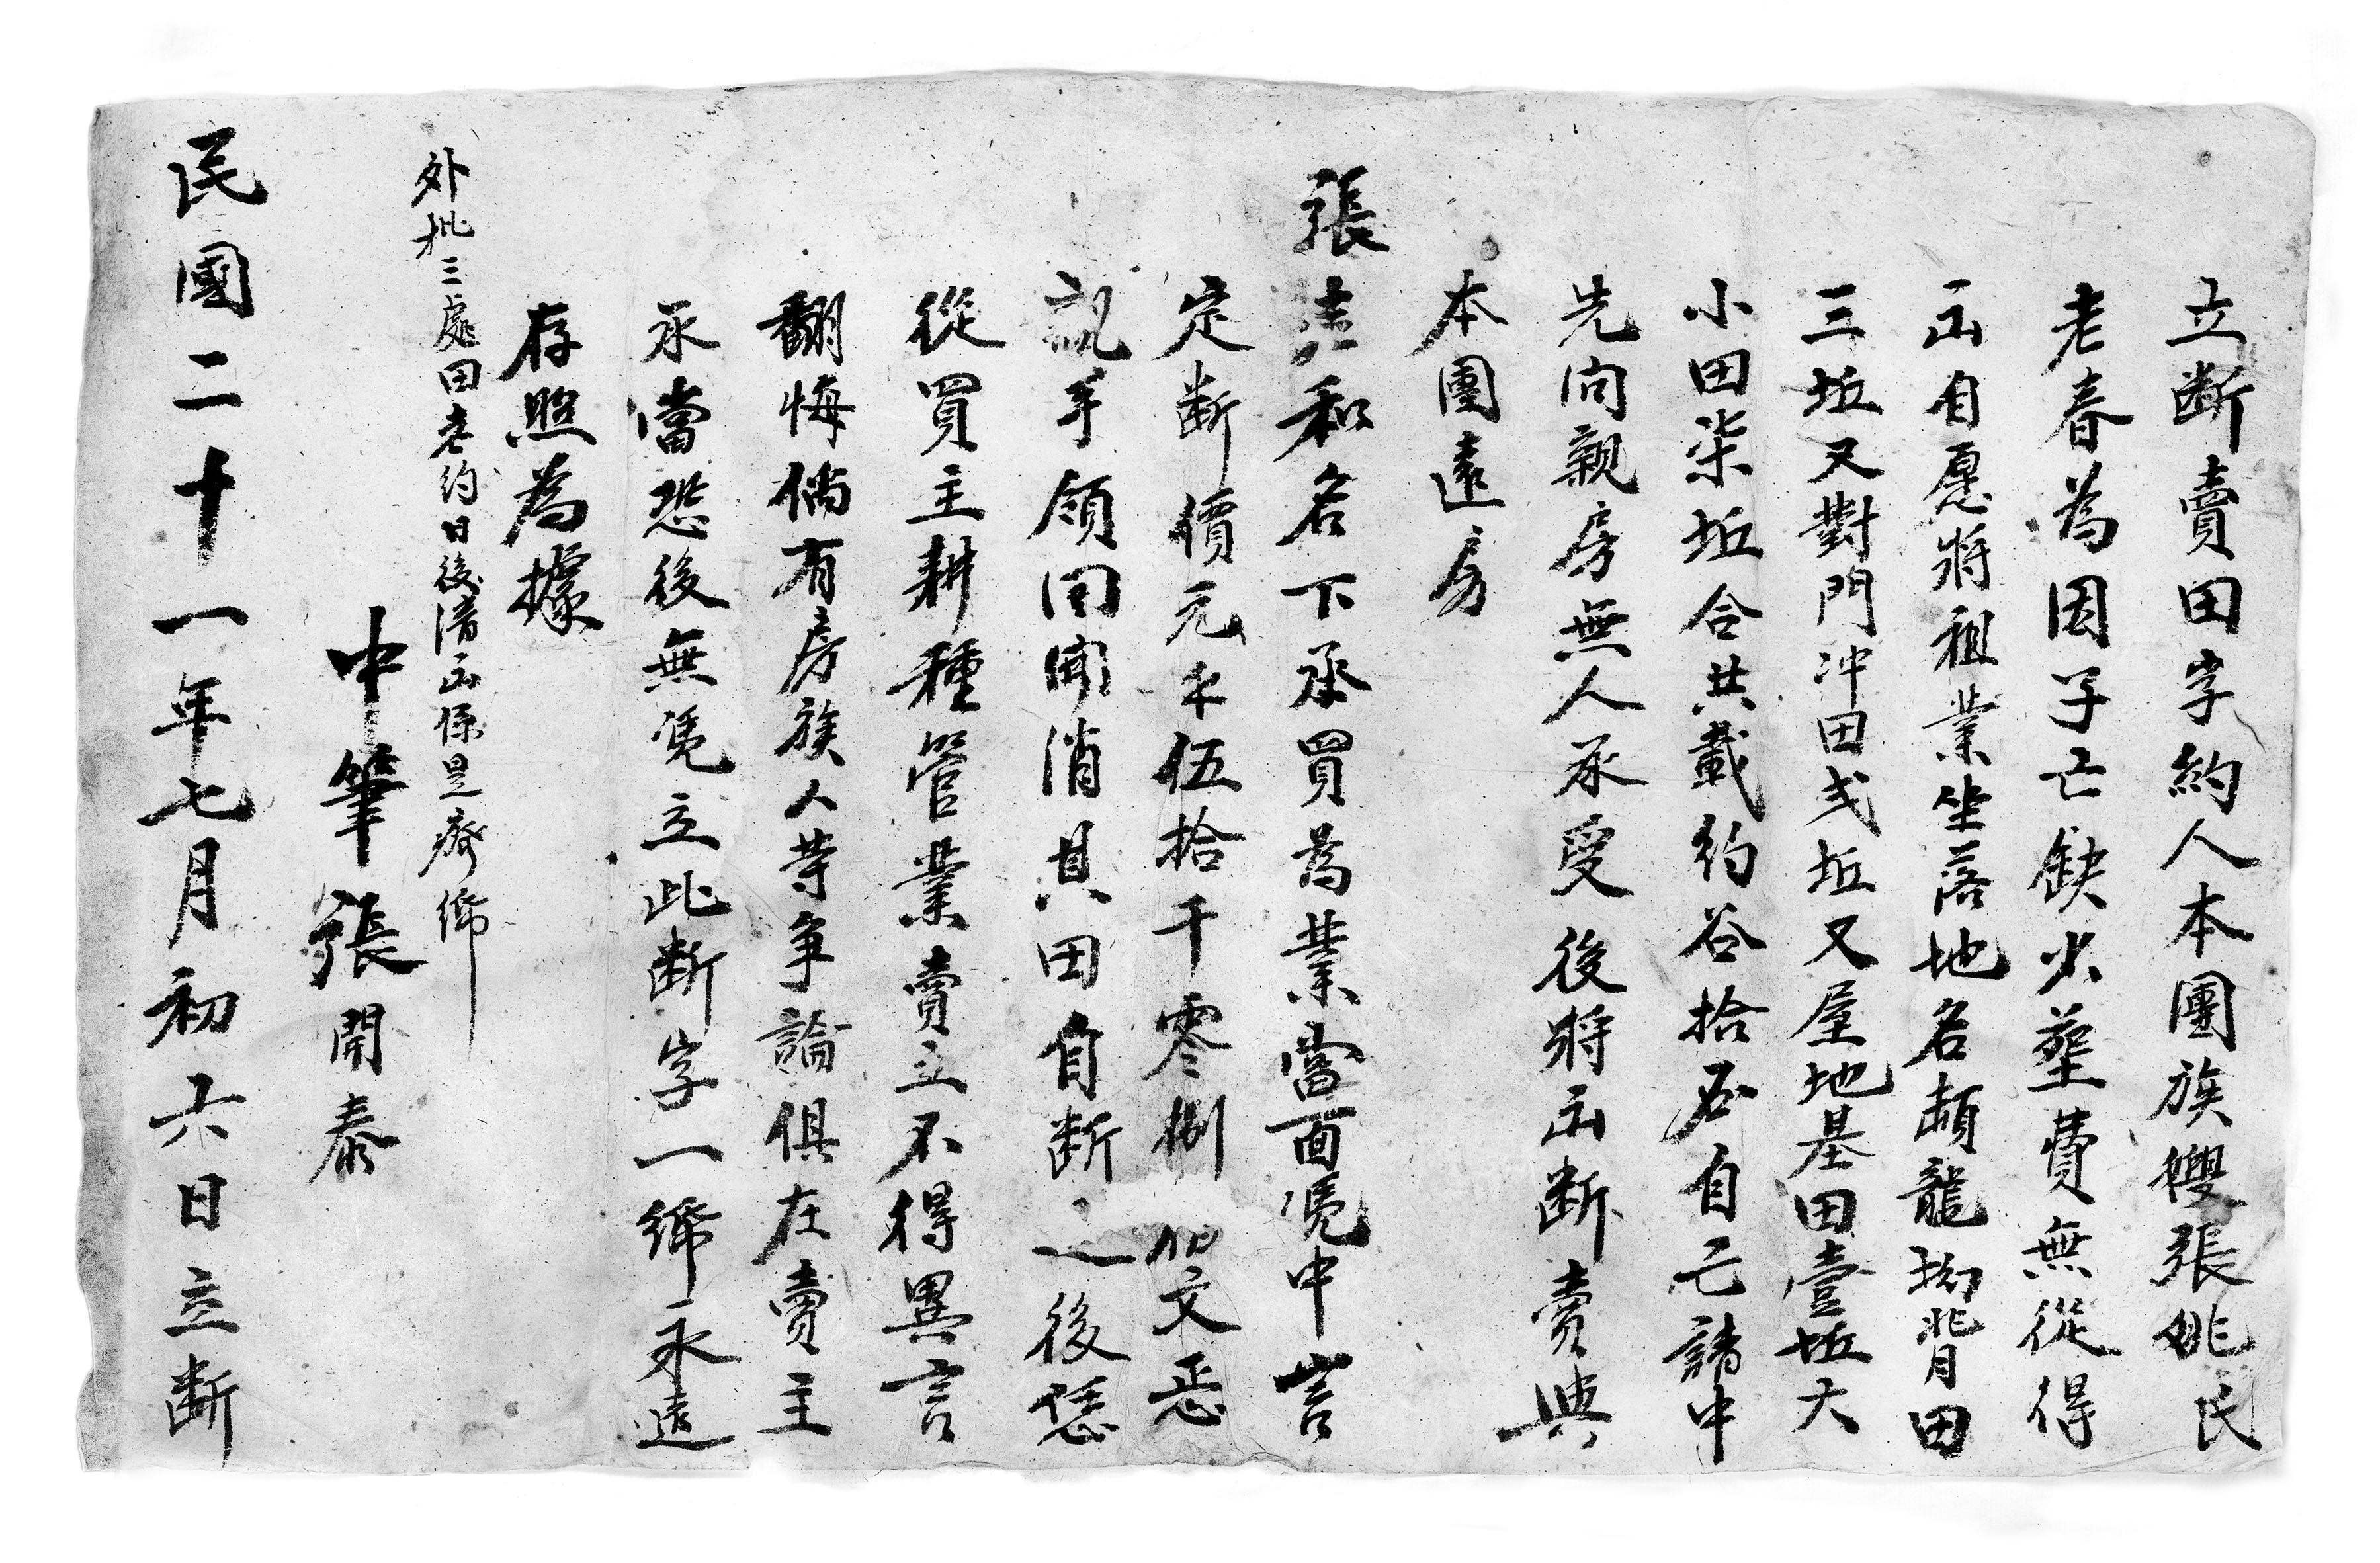 立断賣田字約人本團族嫂張姚氏
老春為因子亡缺少塟費無從得
出自愿將祖業坐落地名頼龍坳背田
三坵又對門冲田弍坵又屋地基田壹坵大
小田柒坵合共載約谷拾石自己請中
先问親房無人承受後將出断賣與
本團遠房
張 和名下承買為業當面凭中言
定断價元禾伍拾千零捌佰文正
親手領囘開消其田自断之後恁
從買主耕種管業賣主不得異言
翻悔倘有房族人等争論俱在賣主
承當恐後無凭立此断字一紙永遠
存照為據
外批三處田老約日後清出係是癈紙
中筆張開泰
民國二十一年七月初六日立断